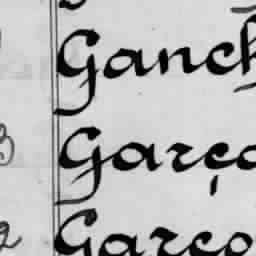 Ganch
Garço
Garço